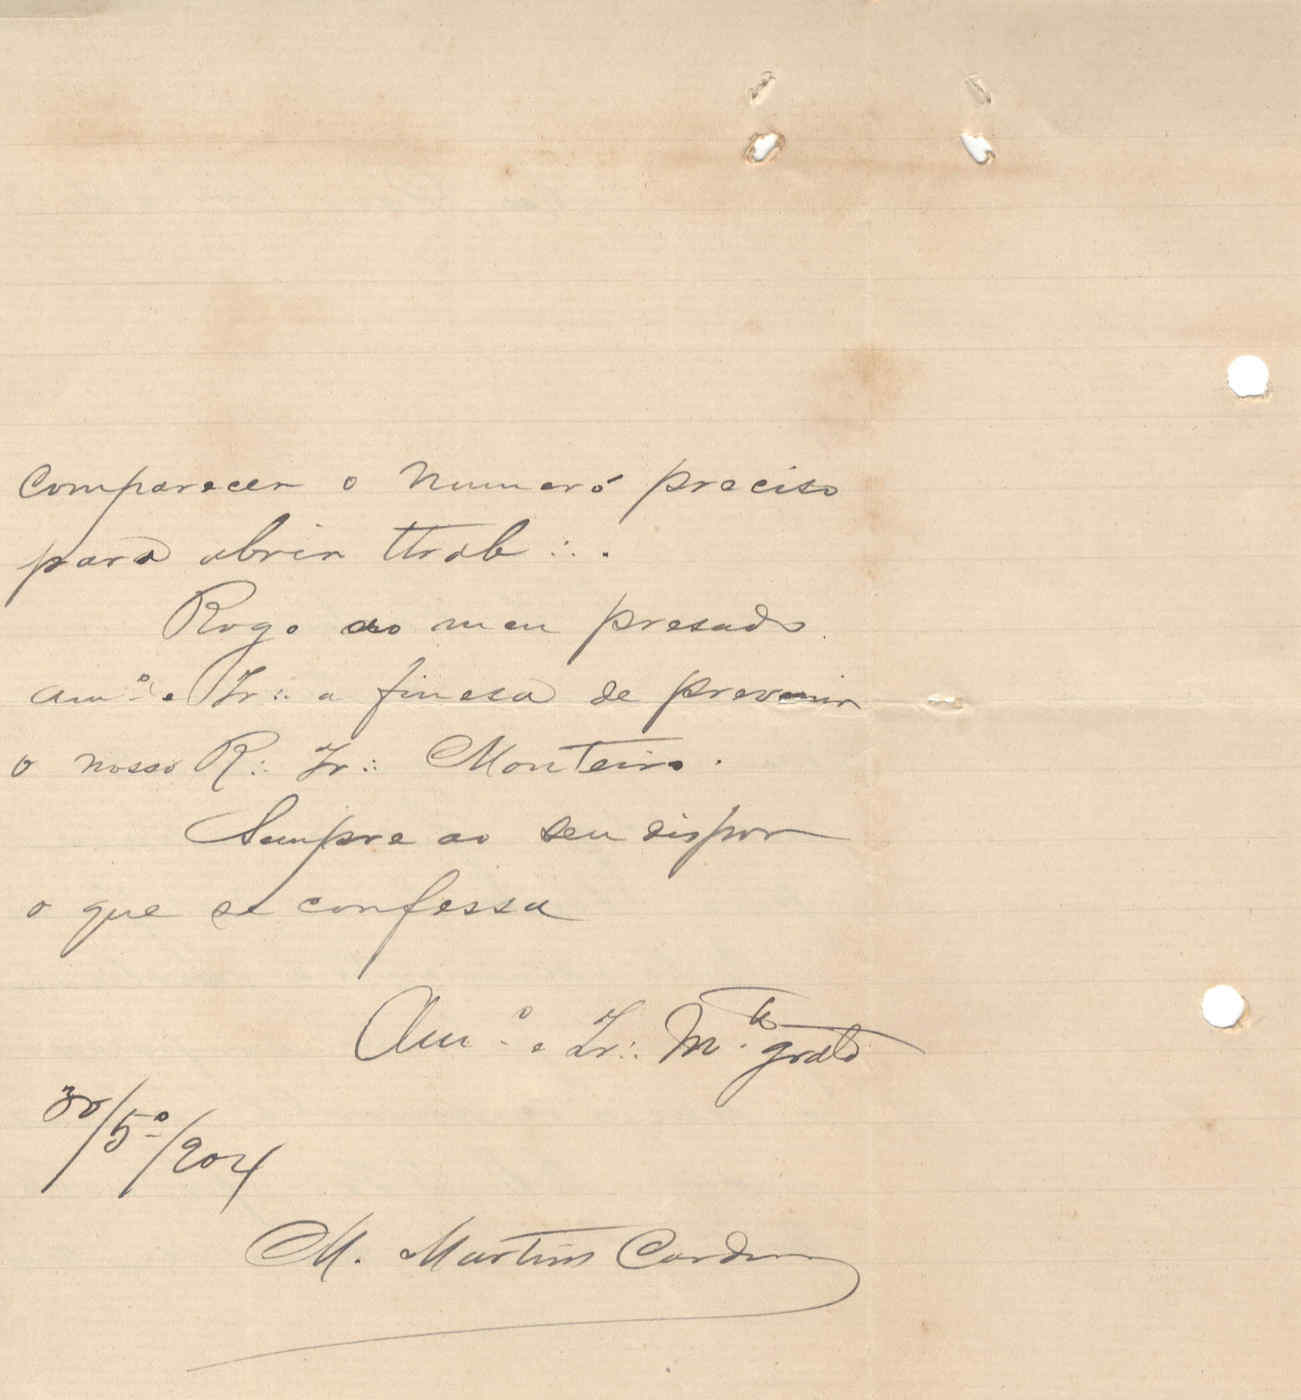 comparecer o numero preciso
para abrir ttrab∴.
Rogo ao meu presado
am.º e Ir∴ a finesa de prevenir
o nosso R∴ Ir∴ Monteiro.
Sempre ao seu dispor
o que se confessa
Am.º e Ir∴ M.to grato
30/5º/904
M. Martins Cardoso